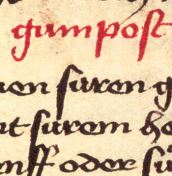 gumpost
en suren g
t surem ho
nff oder su